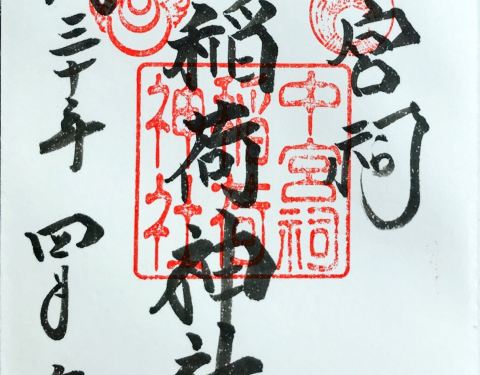 宮祠
稲荷神社
三十年 四月
中宮祠
稲荷
神社